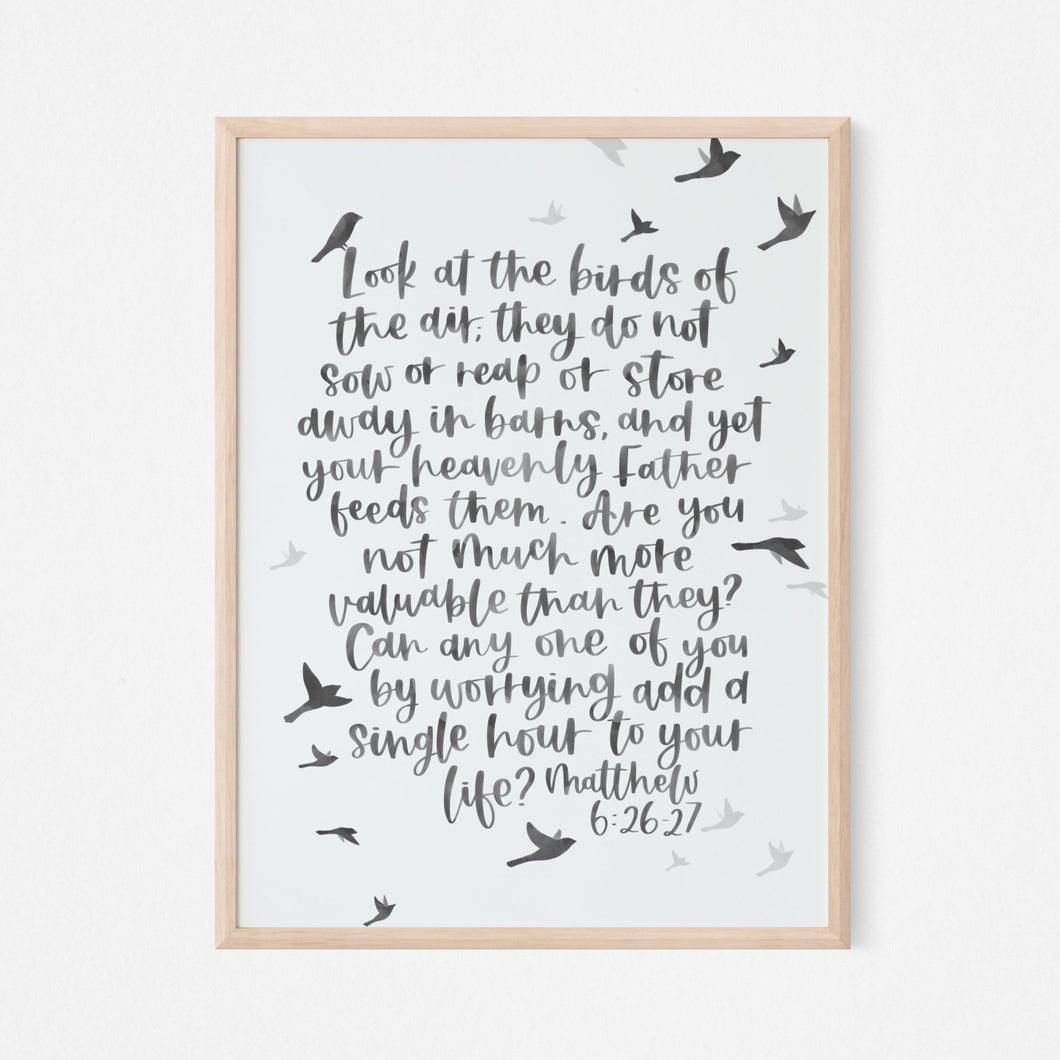 Look at the birds of
the air; they do not
sow or reap or store
away in barns, and yet
your heavenly Father
feeds them. Are you
not much more
valuable than they?
Can any one of you
by worrying add a
single hour to your
life? Matthew
6:26-27